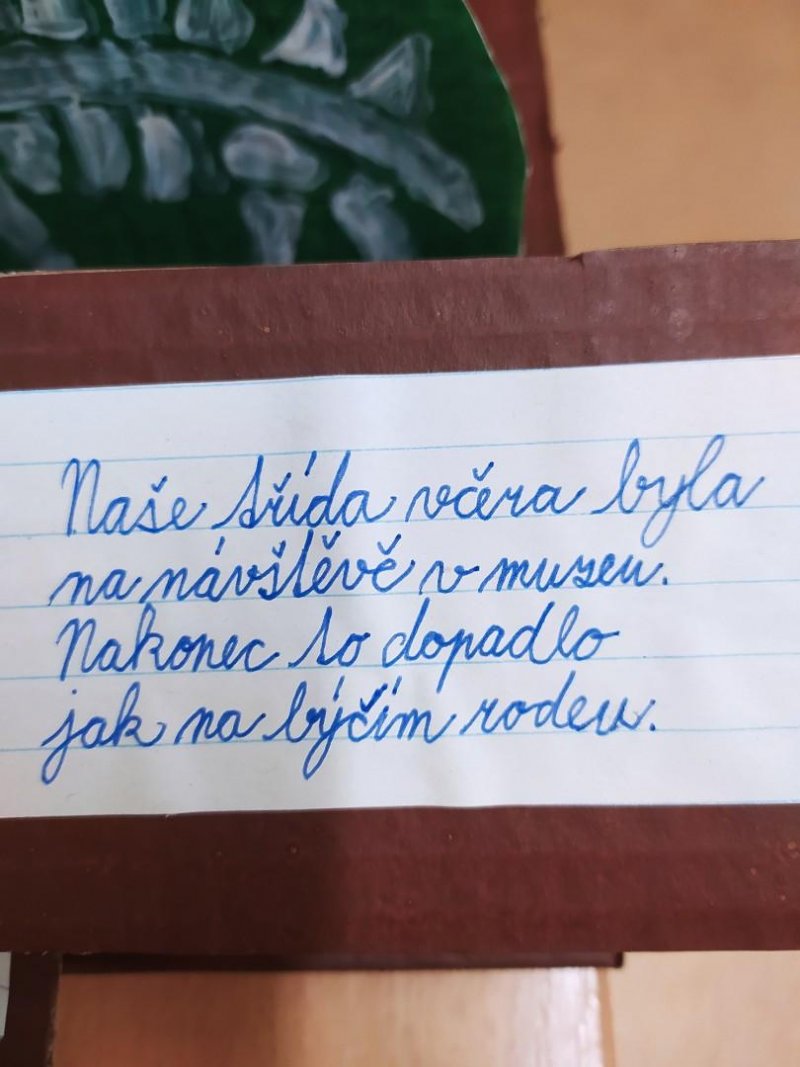 Naše třída včera byla
na návštěvě v muzeu.
Nakonec to dopadlo
jak na býčím rodeu.